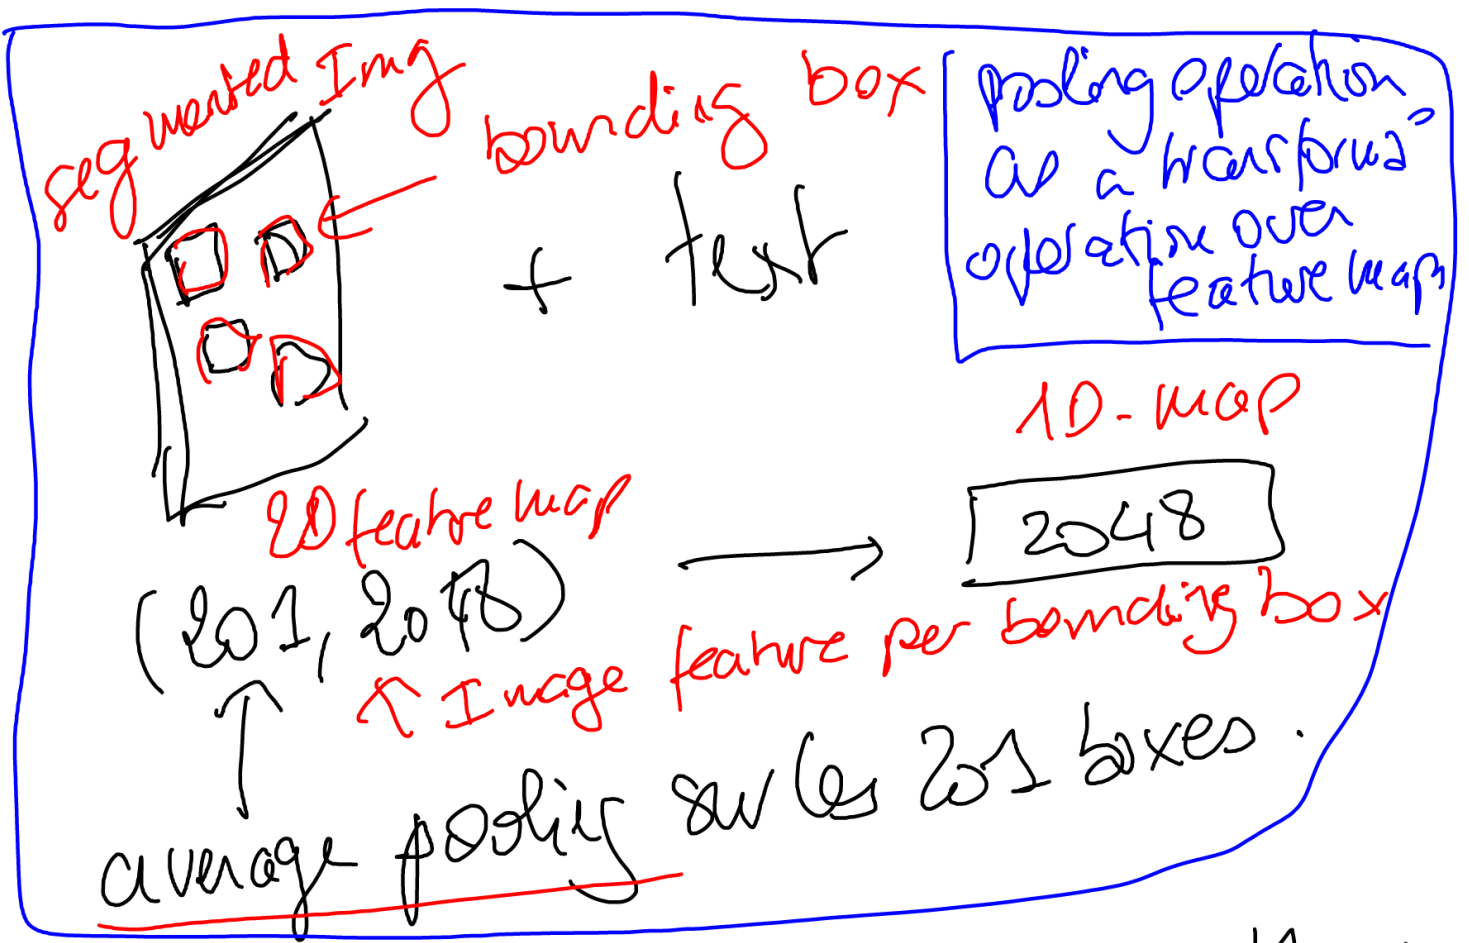 segmented Img
bounding box
+ text
pooling operation
as a transforma°
operation over
feature maps
1D-map
2D feature map
(201, 2048)
2048
Image feature per bounding box
average pooling sur les 201 boxes.